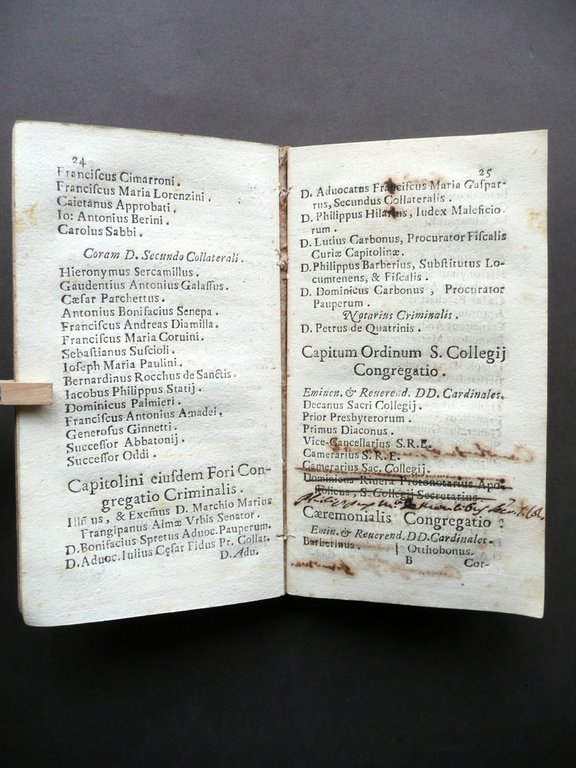 24
Franciscus Cimarroni.
Franciscus Maria Lorenzini.
Caietanus Approbati.
Io: Antonius Berini.
Carolus Sabbi.
Coram D. Secundo Collaterali.
Hieronymus Sercamillus.
Gaudentius Antonius Galassus.
Cæsar Parchettus.
Antonius Bonifacius Senepa.
Franciscus Andreas Diamilla.
Franciscus Maria Coruini.
Sebastianus Suscioli.
Ioseph Maria Paulini.
Bernardinus Rocchus de Sanctis.
Iacobus Philippus Statij.
Dominicus Palmieri.
Franciscus Antonius Amadei.
Generosus Ginnetti.
Successor Abbatonij.
Successor Oddi.
Capitolini eiusdem Fori Con-
gregatio Criminalis.
Illmus, & Excmus D. Marchio Marius
Frangipanus Almæ Vrbis Senator.
D. Bonifacius Spretus Aduoc. Pauperum.
D. Aduoc. Iulius Cesar Fidus Pr. Collat.
D. Adu.
25
D. Aduocatus Franciscus Maria Gaspar-
rus, Secundus Collateralis.
D. Philippus Hilarius, Iudex Maleficio-
rum.
D. Lutius Carbonus, Procurator Fiscalis
Curiæ Capitolinæ.
D. Philippus Barberius, Substitutus Lo-
cumtenens, & Fiscalis.
D. Dominicus Carbonus, Procurator
Pauperum.
Notarius Criminalis.
D. Petrus de Quatrinis.
Capitum Ordinum S. Collegij
Congregatio.
Eminen. & Reuerend. DD. Cardinales.
Decanus Sacri Collegij.
Prior Presbyterorum.
Primus Diaconus.
Vice-Cancellarius S.R.E.
Camerarius S.R.E.
Camerarius Sac. Collegij.
Dominicus Riuera Protonotarius Apo-
stolicus, S. Collegij Secretarius
Cæremonialis Congregatio.
Emin. & Reuerend. DD. Cardinales.
Barberinus. | Otthobonus.
B Cor-